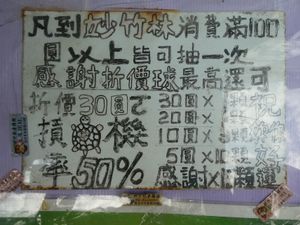 凡到妙竹林消費滿100
圓以上皆可抽一次
感謝折價球最高還可
折價30圓で 30圓×顆祝
損龜機 20圓×顆
10圓×顆
率50% 5圓×10顆好
感謝×顆運